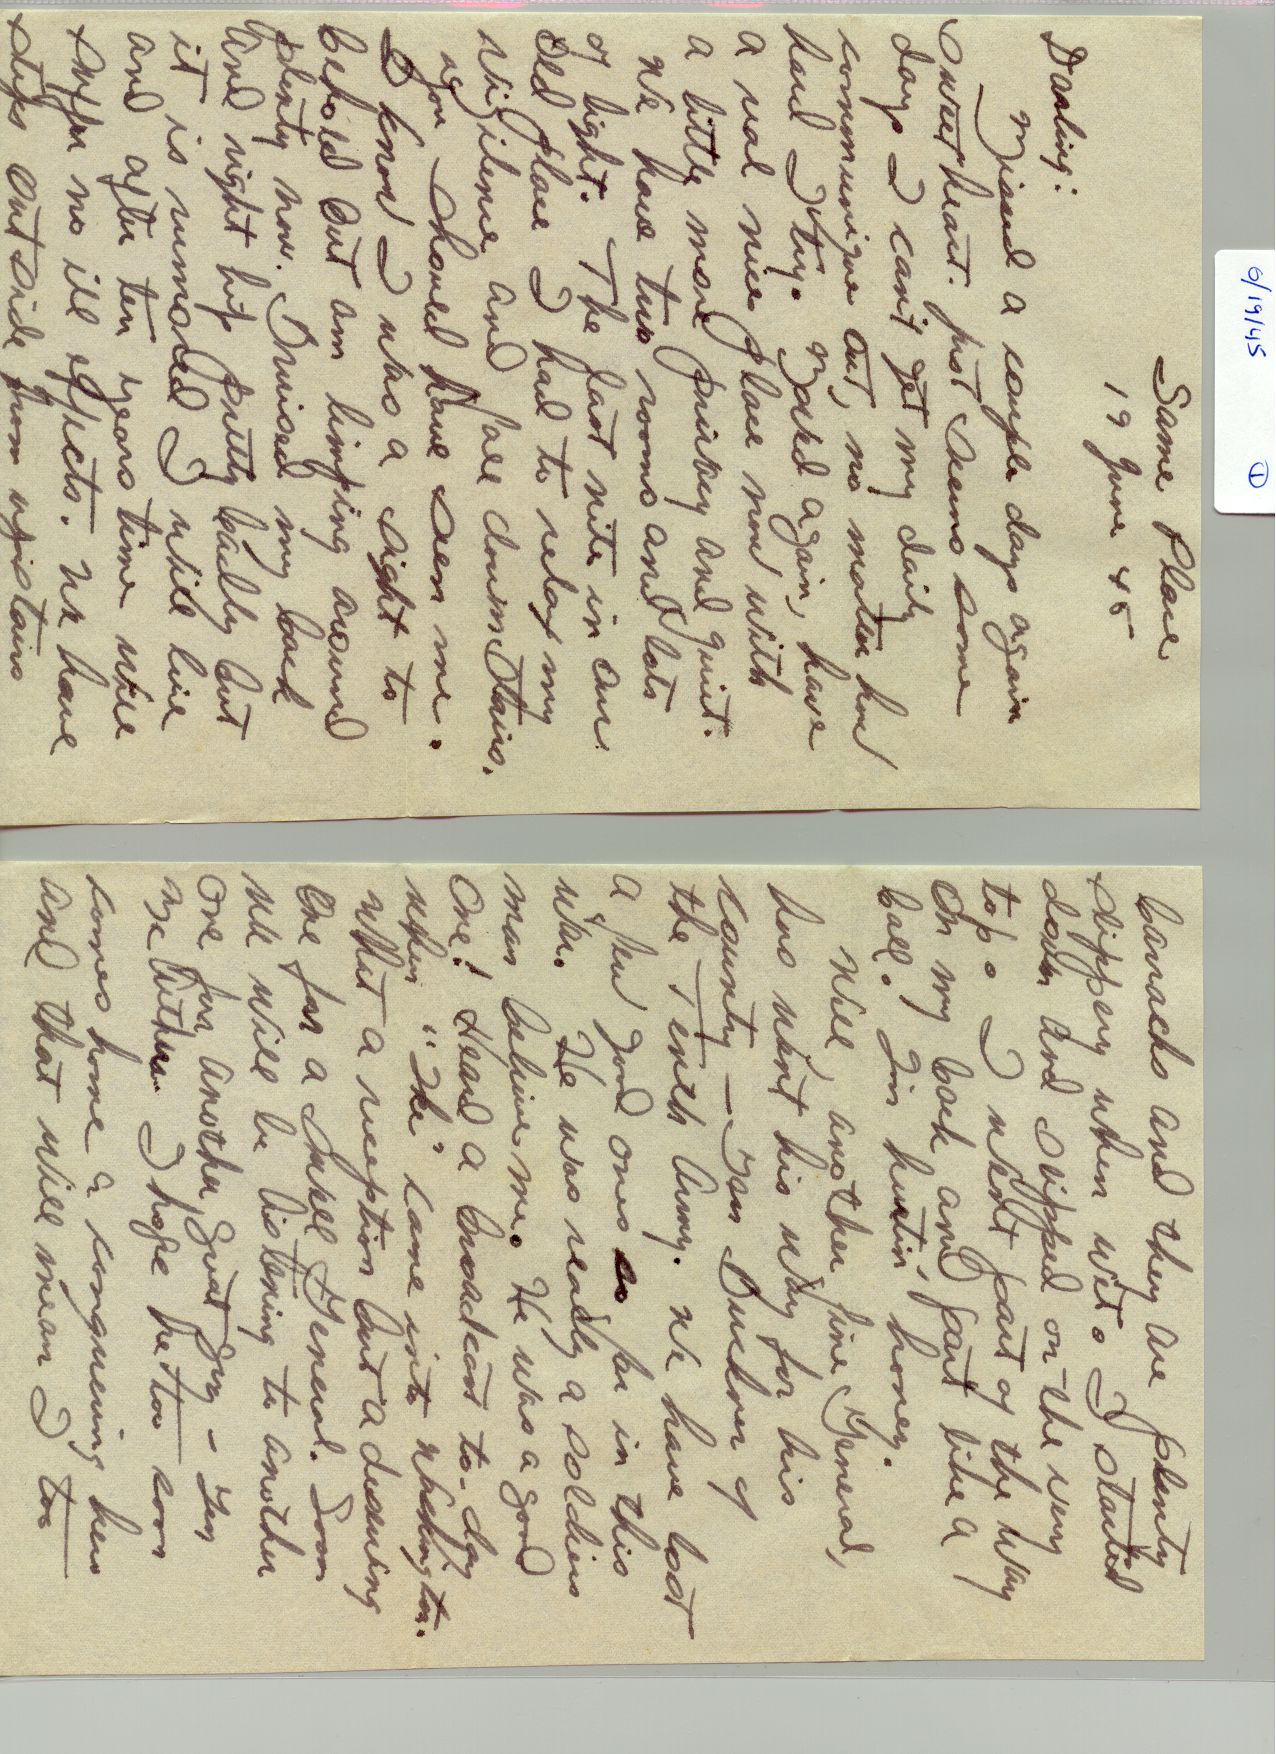 6/19/45 ①
Same Place
19 June 45
Darling:
Missed a couple days again
Sweetheart. Just seems some
days I can't get my daily
communique out, no matter how
hard I try. Moved again, have
a real nice place now with
a little more privacy and quiet.
We have two rooms and lots
of light. The last nite in our
old place I had to relax my
vigilence and fall down stairs.
you should have seen me.
I know I was a sight to
behold but am limping around
plenty now. Bruised my back
and right hip pretty badly but
it is rumored I will live
and after ten years time will
suffer no ill effects. We have
steps outside from upstairs
barracks and they are plenty
slippery when wet. I started
down and slipped on the very
top. I went part of the way
on my back and part like a
ball. I'm hurtin', honey.
Well, another fine General,
has went his way for his
country — Gen Buckner of
the Tenth Army. We have lost
a few good ones so far in this
war. He was really a soldiers
man believe me. He was a good
one! Heard a broadcast to-day
when "Ike" came into Washington.
What a reception but a deserving
one for a swell General. Soon
we will be listening to another
one for another great guy - Gen
MacArthur. I hope he too soon
comes home a conquering hero
and that will mean I too